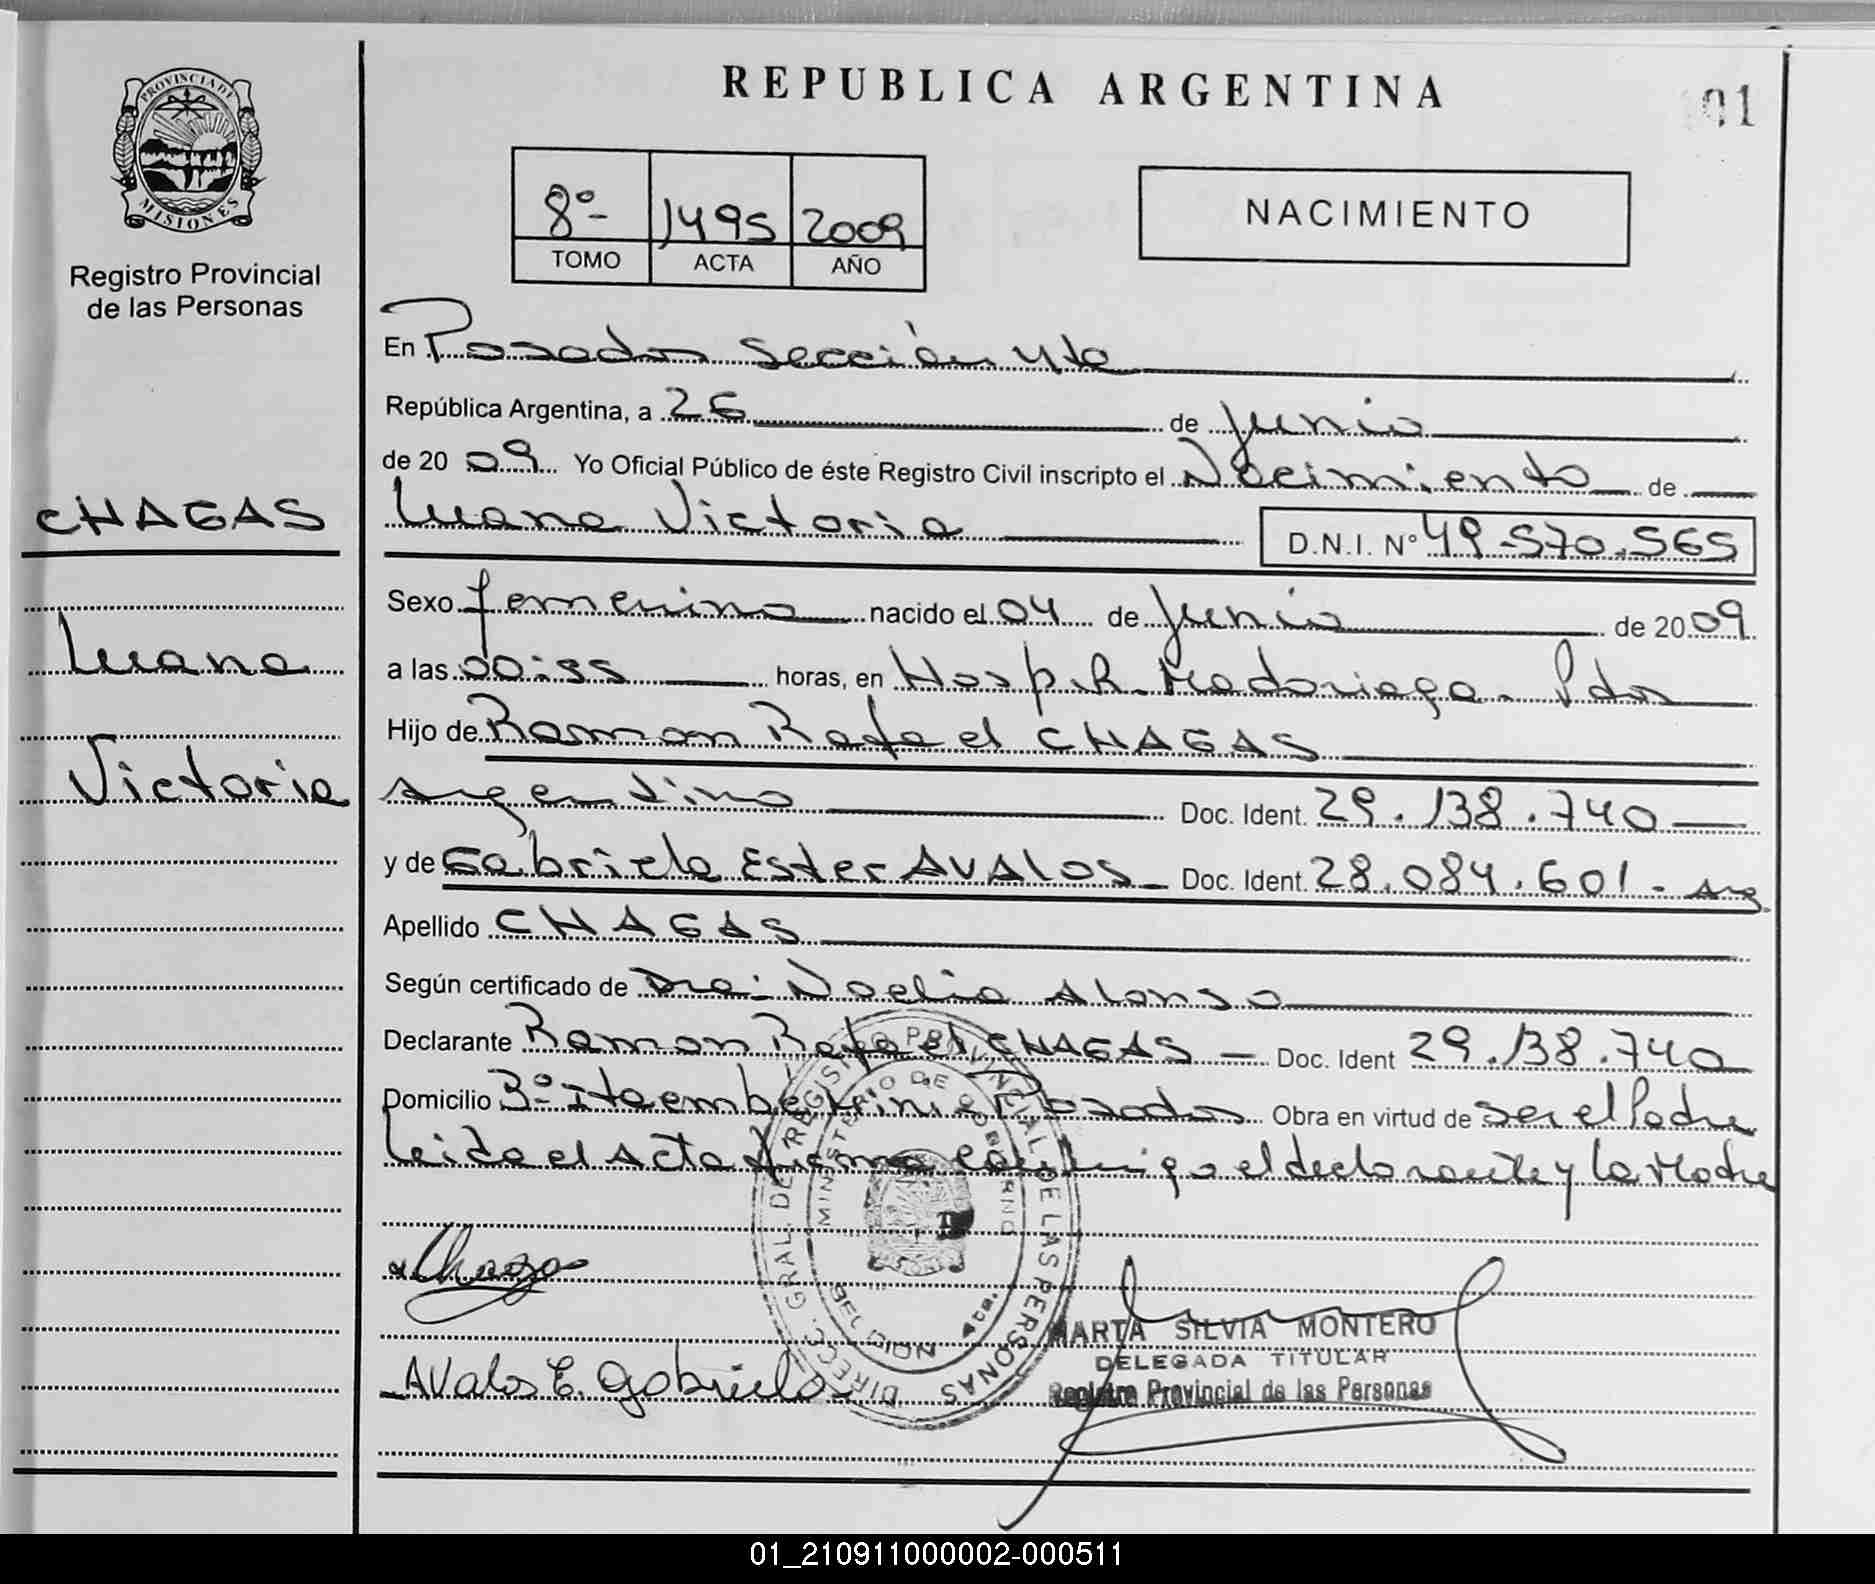 PROVINCIA DE
MISIONES
Registro Provincial
de las Personas
CHAGAS
Luana
Victoria
REPUBLICA ARGENTINA
01
8º- 1495 2009
TOMO ACTA AÑO
NACIMIENTO
En Posadas Sección 4ta
República Argentina, a 26 de Junio
de 20 09 Yo Oficial Público de éste Registro Civil inscripto el Nacimiento de
Luana Victoria D.N.I. Nº 49.570.565
Sexo femenino nacido el 04 de Junio de 20 09
a las 00:55 horas, en Hosp. R. Madariaga - Pdas
Hijo de Ramon Rafael CHAGAS
Argentino Doc. Ident. 29.138.740
y de Gabriela Ester AVALOS Doc. Ident. 28.084.601 - Arg.
Apellido CHAGAS
Según certificado de Dra: Noelia Alonso
Declarante Ramon Rafael CHAGAS Doc. Ident 29.138.740
Domicilio Bº Itaembé Mini - Posadas Obra en virtud de ser el Padre
Leida el Acta firma conmigo el declarante y la Madre
Chagas
Avalos E. Gabriela
DIRECC. GRAL. DE REGISTRO PROVINCIAL DE LAS PERSONAS
MINISTERIO DE GOBIERNO
4ta.
MARTA SILVIA MONTERO
DELEGADA TITULAR
Registro Provincial de las Personas
01_210911000002-000511